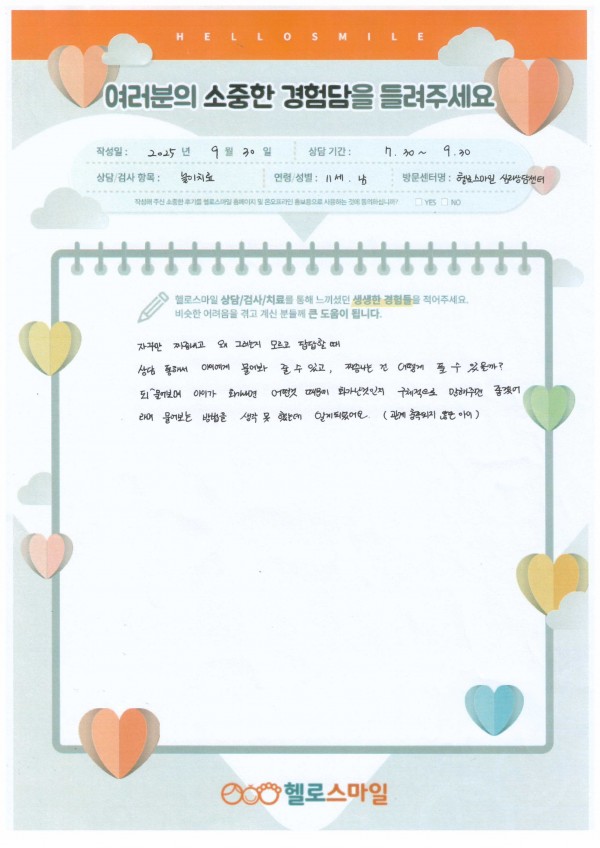 HELLOSMILE
여러분의 소중한 경험담을 들려주세요
작성일 : 2025 년 9 월 30 일 상담 기간 : 7.30 ~ 9.30
상담/검사 항목 : 놀이치료 연령/성별 : 11세. 남 방문센터명 : 헬로스마일 심리상담센터
작성해 주신 소중한 후기를 헬로스마일 홈페이지 및 온오프라인 홍보용으로 사용하는 것에 동의하십니까? □ YES □ NO
헬로스마일 상담/검사/치료를 통해 느끼셨던 생생한 경험들을 적어주세요.
비슷한 어려움을 겪고 계신 분들께 큰 도움이 됩니다.
자꾸만 짜증내고 왜 그런지 모르고 답답할 때
상담 통해서 아이에게 물어봐 줄 수 있고, 짜증나는 건 어떻게 풀 수 있을까?
되물어보며 아이가 화가나면 어떤것 때문에 화가난것인지 구체적으로 말해주면 좋겠어
라며 물어보는 방법을 생각 못 했는데 알게되었어요. (관계 충족되지 않은 아이)
헬로스마일